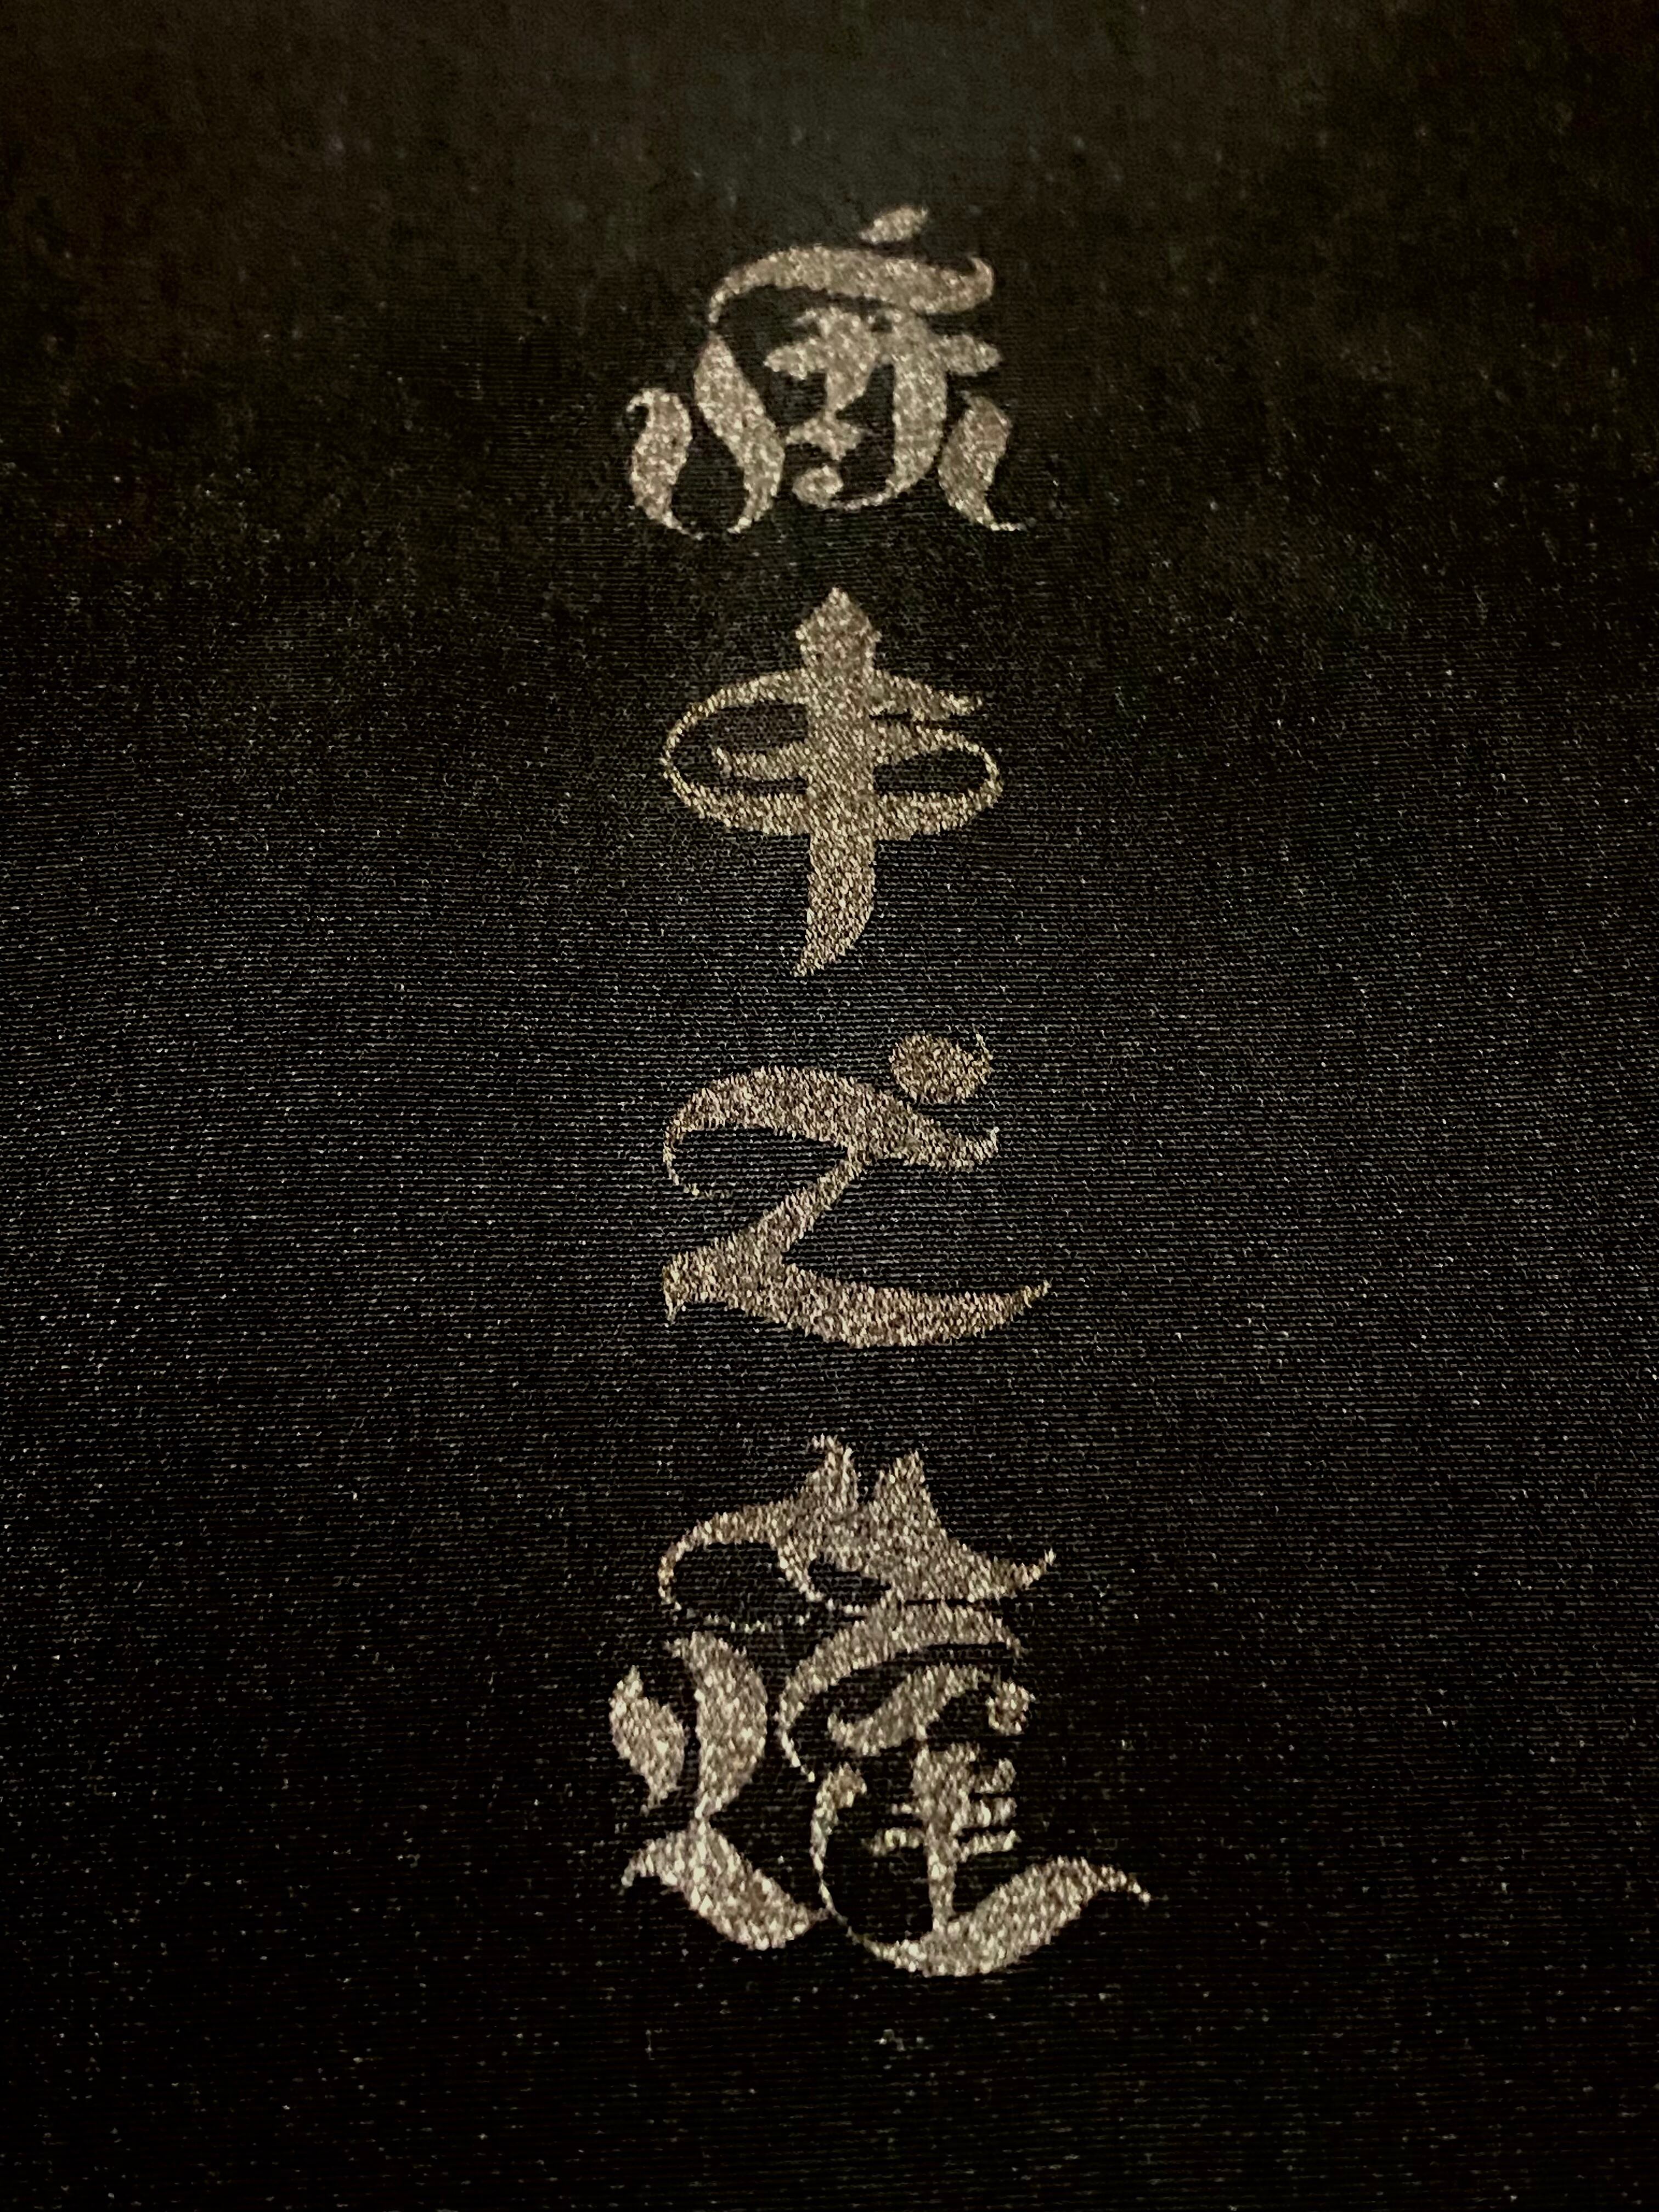 麻中之蓬